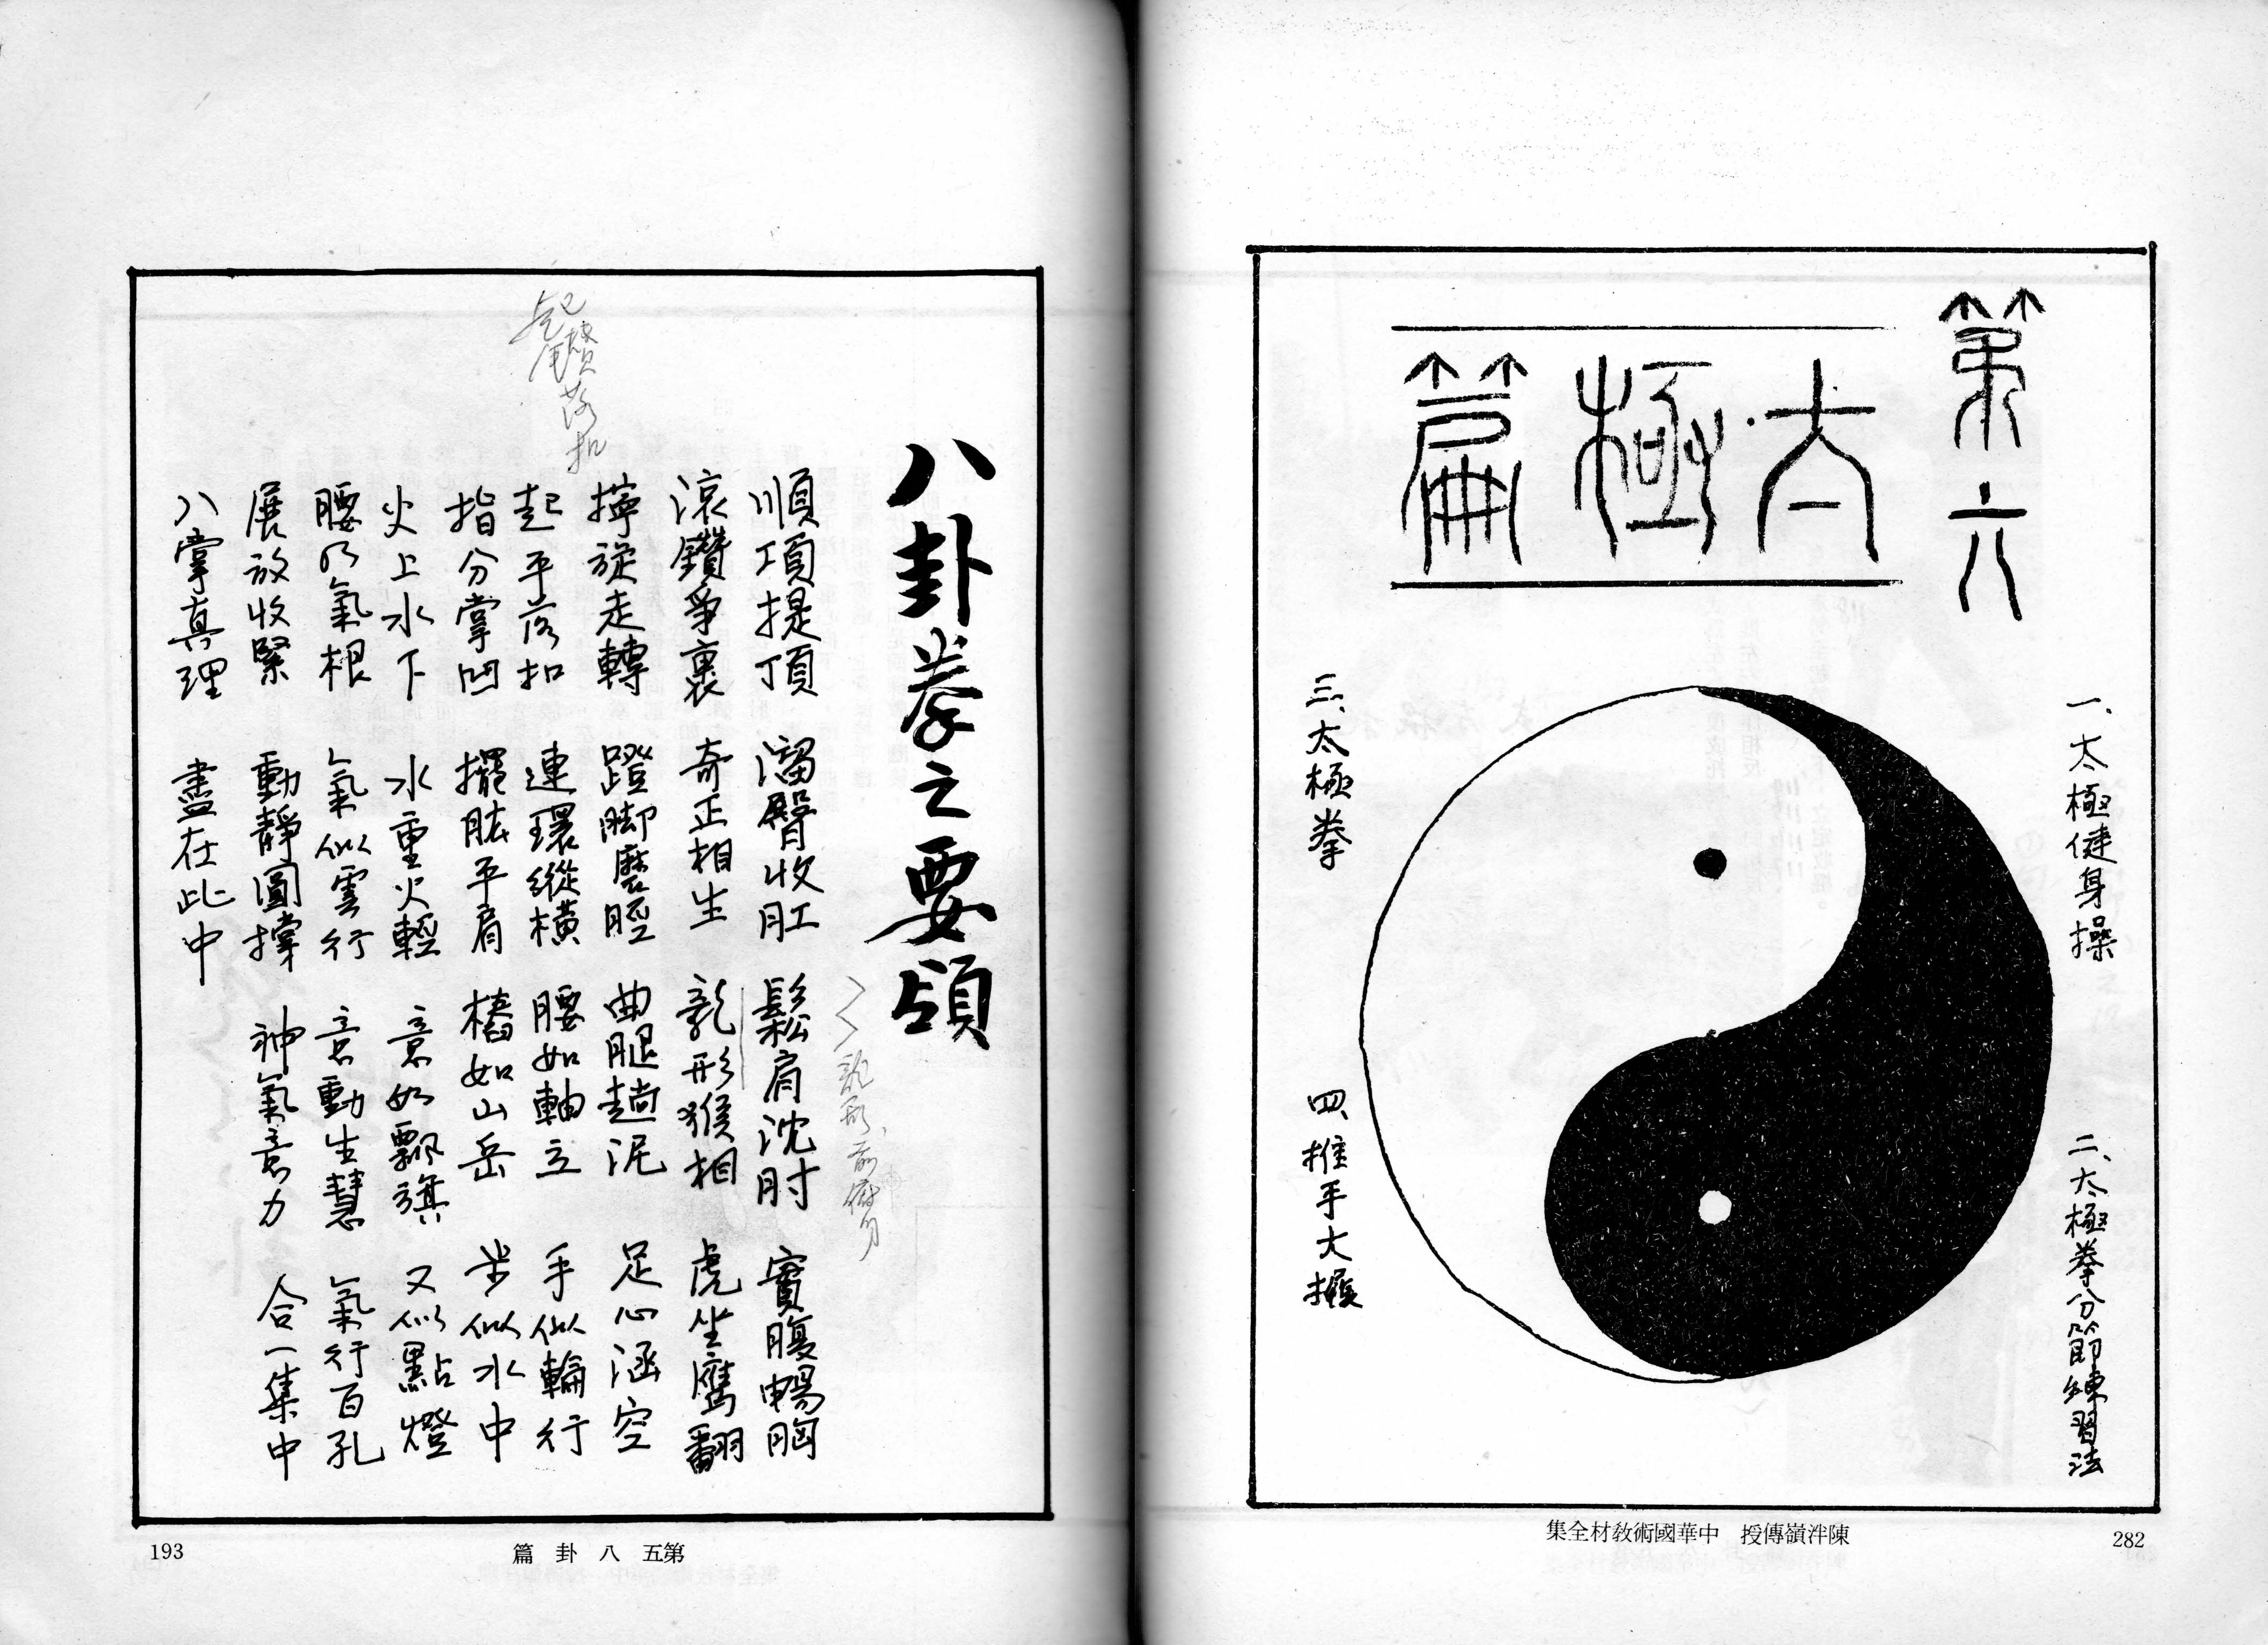 第六
太極篇
一、太極健身操
二、太極拳分節練習法
三、太極拳
四、推手大
陳泮嶺傳授 中華國術教材全集
282
八卦拳之要領
龍形、前
順項提頂 溜臀收肛 鬆肩沈肘 實腹暢胸
滾鑽爭裹 奇正相生 龍形猴相 虎坐鷹翻
擰旋走轉 蹬脚磨脛 曲腿趟泥 足心涵空
起鑽落扣
起平落扣 連環縱橫 腰如軸立 手似輪行
指分掌凹 擺肱平肩 樁如山岳 步似水中
火上水下 水重火輕 意如飄旗 又似點燈
腰乃氣根 氣似雲行 意動生慧 氣行百孔
展放收緊 動靜圓撐 神氣意力 合一集中
八掌真理 盡在此中
第五 八卦篇
193